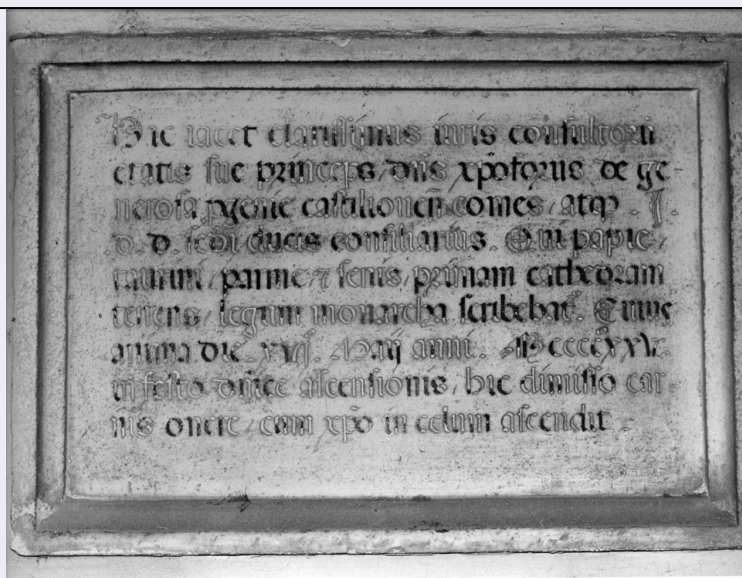 Hic iacet clarissimus iuris consultorū
etatis sue princeps / dn̄s xp̄oforus de ge-
nerosa pgenie castilioneū comes / atqꝫ .
d. d. ducis consiliarius. Qui papie /
taurini / parme / ⁊ senis / primam cathedram
tenens / legum monarcha scribebat͛. Cuius
anima die . xvij. Maij anni . Mccccxxv.
in festo dn̄ice ascensionis / hic dimisso car-
nis onere / cum xp̄o in celum ascendit .